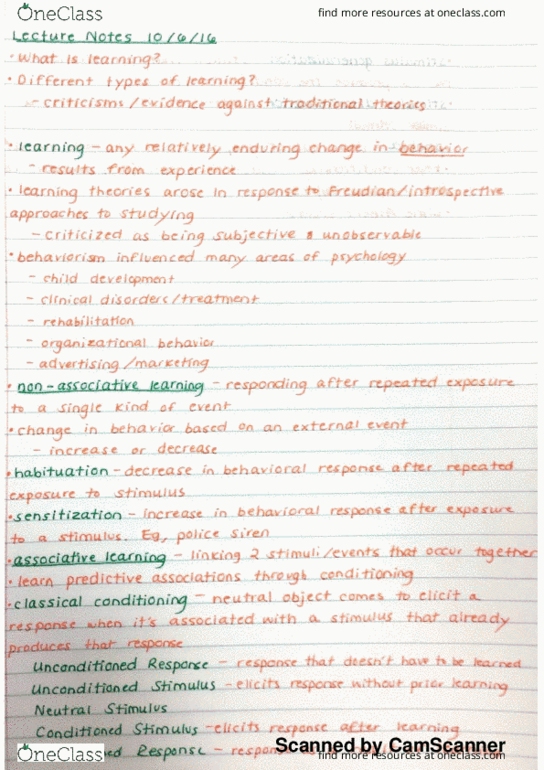 OneClass
find more resources at oneclass.com
Lecture Notes 10/6/16
• What is learning?
• Different types of learning?
- criticisms/evidence against traditional theories
• learning - any relatively enduring change in behavior
- results from experience
• learning theories arose in response to Freudian/introspective
approaches to studying
- criticized as being subjective & unobservable
• behaviorism influenced many areas of psychology
- child development
- clinical disorders/treatment
- rehabilitation
- organizational behavior
- advertising/marketing
• non-associative learning - responding after repeated exposure
to a single kind of event
• change in behavior based on an external event
- increase or decrease
• habituation - decrease in behavioral response after repeated
exposure to stimulus
• sensitization - increase in behavioral response after exposure
to a stimulus. Eg, police siren
• associative learning - linking 2 stimuli/events that occur together
• learn predictive associations through conditioning
• classical conditioning - neutral object comes to elicit a
response when it's associated with a stimulus that already
produces that response
Unconditioned Response - response that doesn't have to be learned
Unconditioned Stimulus - elicits response without prior learning
Neutral Stimulus
Conditioned Stimulus - elicits response after learning
Response -
Scanned by CamScanner
OneClass
find more resources at oneclass.com